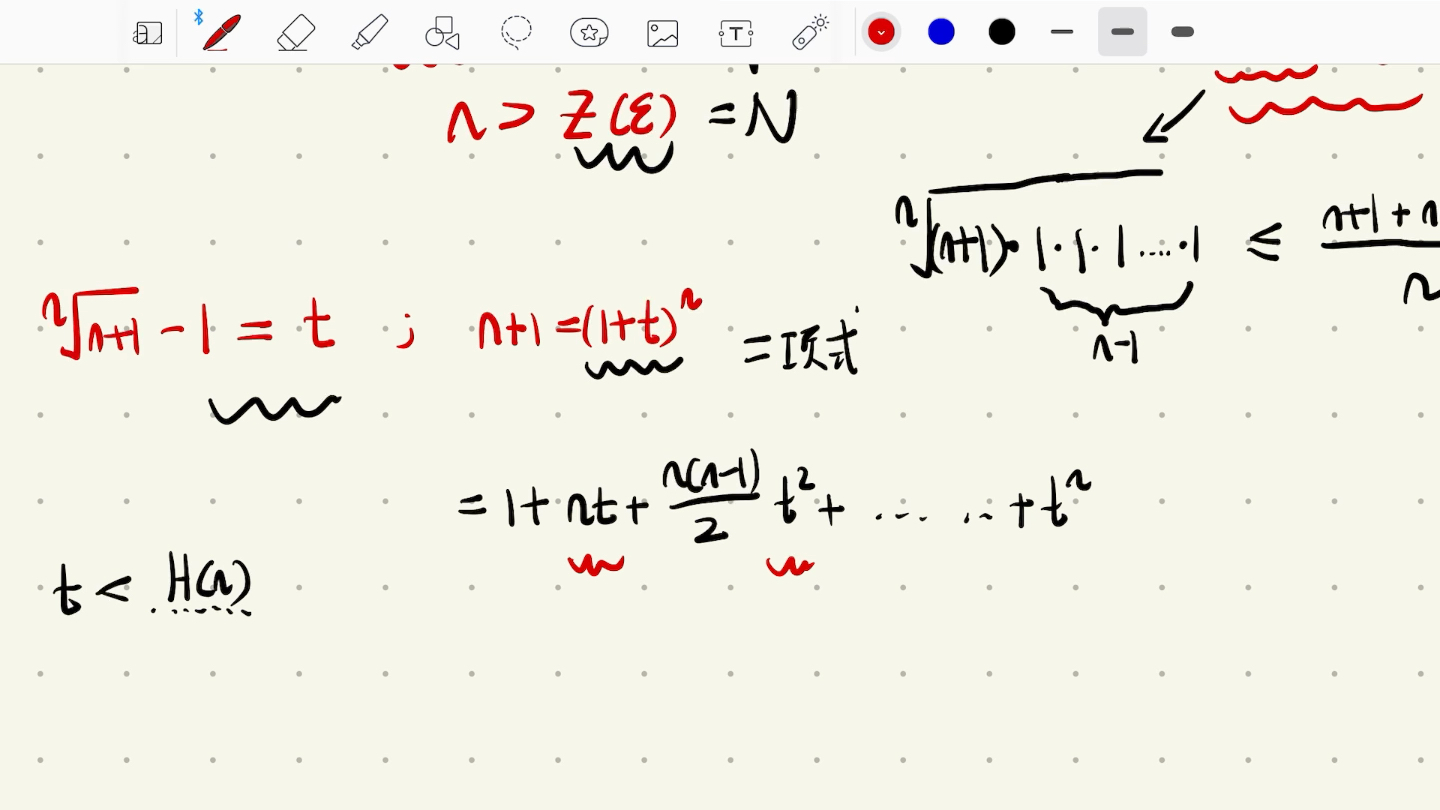 n > Z(ε) = N
ⁿ√(n+1)·1·1·1....·1 ≤ n+1+n
n
n-1
ⁿ√n+1 - 1 = t ; n+1 = (1+t)ⁿ
二项式
= 1 + nt + n(n-1)/2 t² + ...... + tⁿ
t < H(n)